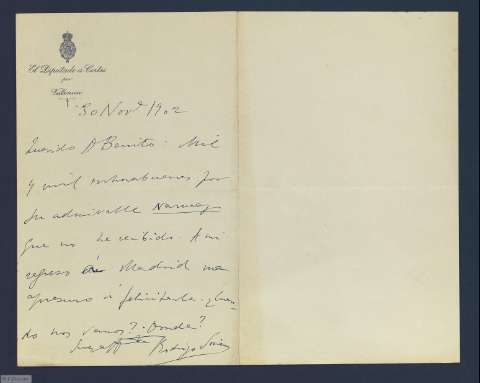 El Diputado a Cortes
por
Valencia
30 Novᵉ 1902
Querido D Benito. Mil
y mil enhorabuenas por
su admirable Narvaez
que he recibido. A mi
regreso á Madrid me
apresuro á felicitarle. ¿Cuan-
do nos vemos? ¿Donde?
Rodrigo Soriano